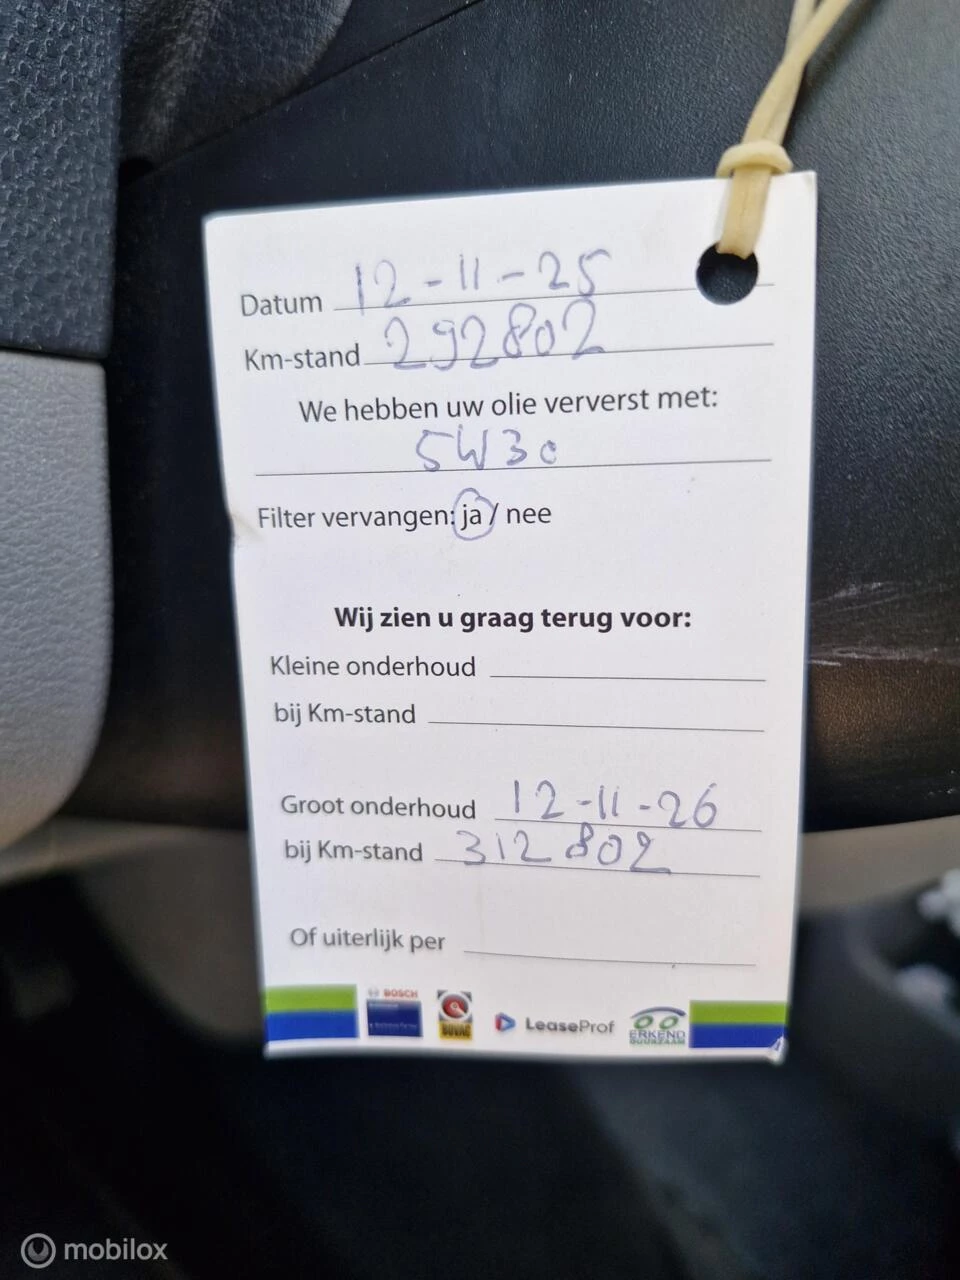 Datum 12-11-25
Km-stand 292802
We hebben uw olie ververst met:
5W30
Filter vervangen: ja / nee
Wij zien u graag terug voor:
Kleine onderhoud
bij Km-stand
Groot onderhoud 12-11-26
bij Km-stand 312802
Of uiterlijk per
BOSCH
BOVAG
LeaseProf
ERKEND
DUURZAAM
mobilox